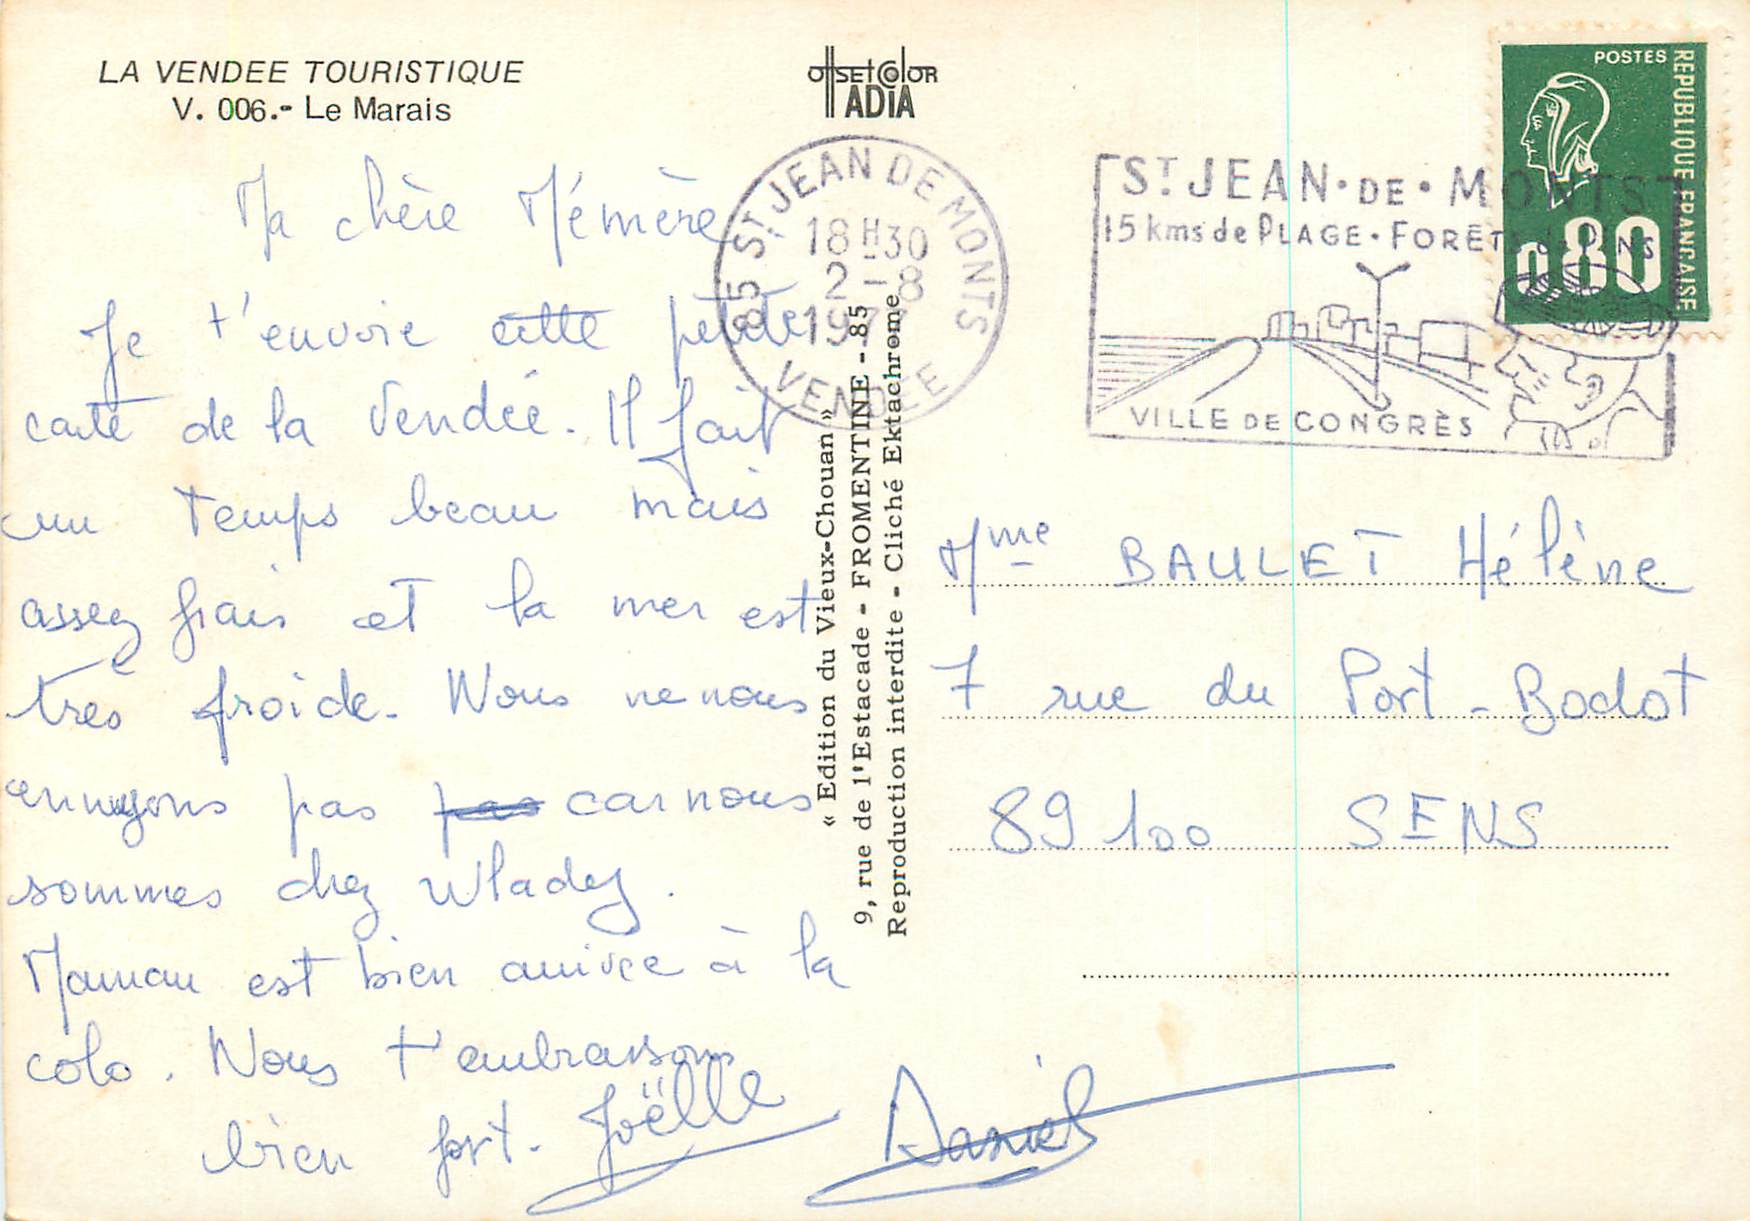 LA VENDEE TOURISTIQUE
V. 006.- Le Marais
offsetcolor
ADIA
Ma chère Mémère
Je t'envoie cette petite
carte de la Vendée. Il fait
un temps beau mais
assez frais et la mer est
très froide. Nous ne nous
ennuyons pas pas car nous
sommes chez Wladez.
Maman est bien arrivée à la
colo. Nous t'embrassons
bien fort. Joëlle
Daniel
« Edition du Vieux-Chouan »
9, rue de l'Estacade - FROMENTINE - 85
Reproduction interdite - Cliché Ektachrome
85 ST JEAN DE MONTS
18H30
2-8
1977
VENDÉE
ST JEAN·DE·MONTS
15 kms de PLAGE·FORÊT de PINS
VILLE DE CONGRÈS
POSTES
REPUBLIQUE FRANCAISE
0,80
Mme BAULET Hélène
7 rue du Port-Bodot
89100 SENS